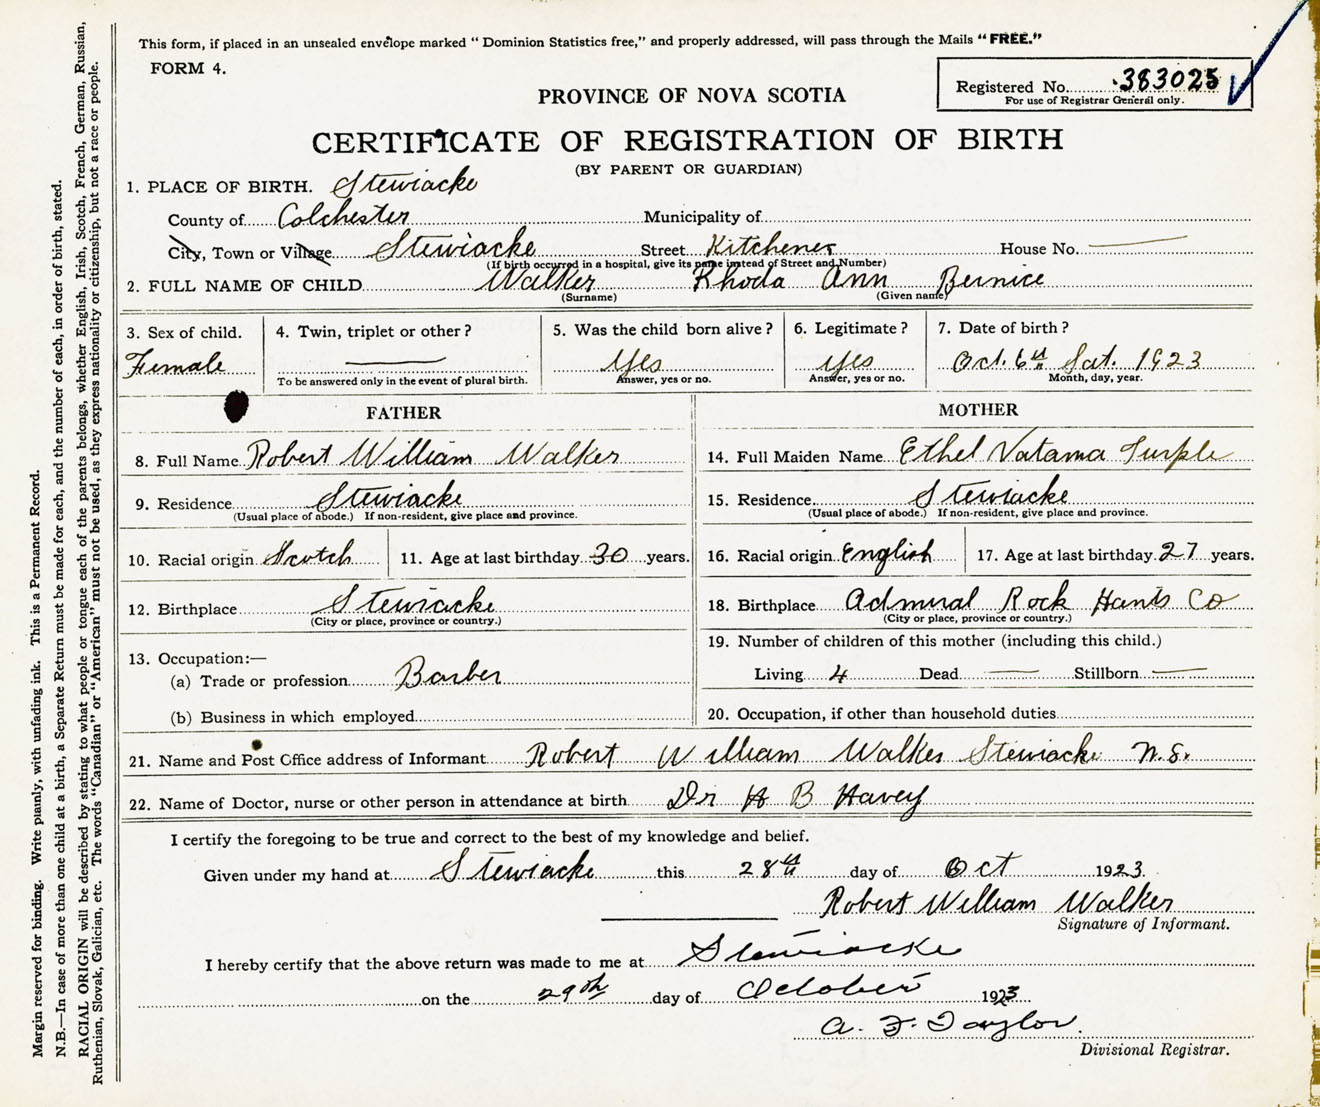 This form, if placed in an unsealed envelope marked "Dominion Statistics free," and properly addressed, will pass through the Mails "FREE."
FORM 4.
Registered No. 383025
For use of Registrar General only.
PROVINCE OF NOVA SCOTIA
CERTIFICATE OF REGISTRATION OF BIRTH
(BY PARENT OR GUARDIAN)
1. PLACE OF BIRTH. Stewiacke
County of Colchester Municipality of
City, Town or Village Stewiacke Street Kitchener House No. —
(If birth occurred in a hospital, give its name instead of Street and Number)
2. FULL NAME OF CHILD Walker Rhoda Ann Bernice
(Surname) (Given name)
3. Sex of child. 4. Twin, triplet or other? 5. Was the child born alive? 6. Legitimate? 7. Date of birth?
Female — Yes Yes Oct. 6th Sat. 1923
To be answered only in the event of plural birth. Answer, yes or no. Answer, yes or no. Month, day, year.
FATHER
8. Full Name Robert William Walker
9. Residence Stewiacke
(Usual place of abode.) If non-resident, give place and province.
10. Racial origin Scotch 11. Age at last birthday 30 years.
12. Birthplace Stewiacke
(City or place, province or country.)
13. Occupation:—
(a) Trade or profession Barber
(b) Business in which employed
MOTHER
14. Full Maiden Name Ethel Vatama Turple
15. Residence Stewiacke
(Usual place of abode.) If non-resident, give place and province.
16. Racial origin English 17. Age at last birthday 27 years.
18. Birthplace Admiral Rock Hants Co
(City or place, province or country.)
19. Number of children of this mother (including this child.)
Living 4 Dead — Stillborn —
20. Occupation, if other than household duties
21. Name and Post Office address of Informant Robert William Walker Stewiacke N.S.
22. Name of Doctor, nurse or other person in attendance at birth Dr H B Havey
I certify the foregoing to be true and correct to the best of my knowledge and belief.
Given under my hand at Stewiacke this 28th day of Oct 1923.
Robert William Walker
Signature of Informant.
I hereby certify that the above return was made to me at Stewiacke
on the 29th day of October 1923
A. F. Taylor.
Divisional Registrar.
Margin reserved for binding. Write plainly, with unfading ink. This is a Permanent Record.
N.B.—In case of more than one child at a birth, a Separate Return must be made for each, and the number of each, in order of birth, stated.
RACIAL ORIGIN will be described by stating to what people or tongue each of the parents belongs, whether English, Irish, Scotch, French, German, Russian,
Ruthenian, Slovak, Galician, etc. The words "Canadian" or "American" must not be used, as they express nationality or citizenship, but not a race or people.